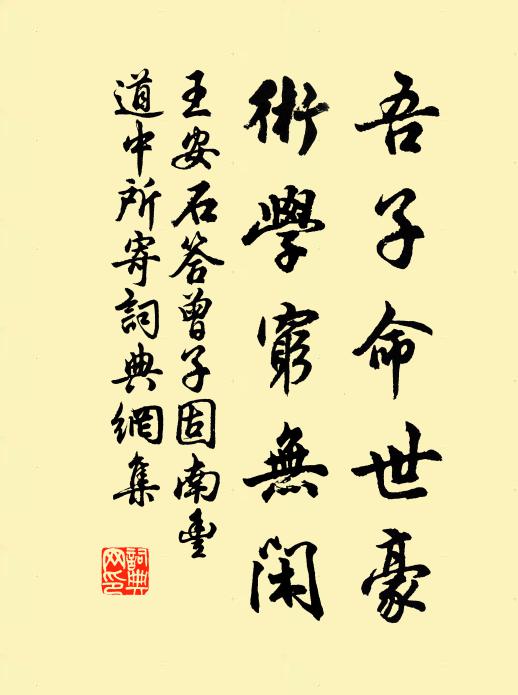 吾子命世豪
術學窮無閑
王安石答曾子固南豐
道中所寄詞典網集
詞典网印